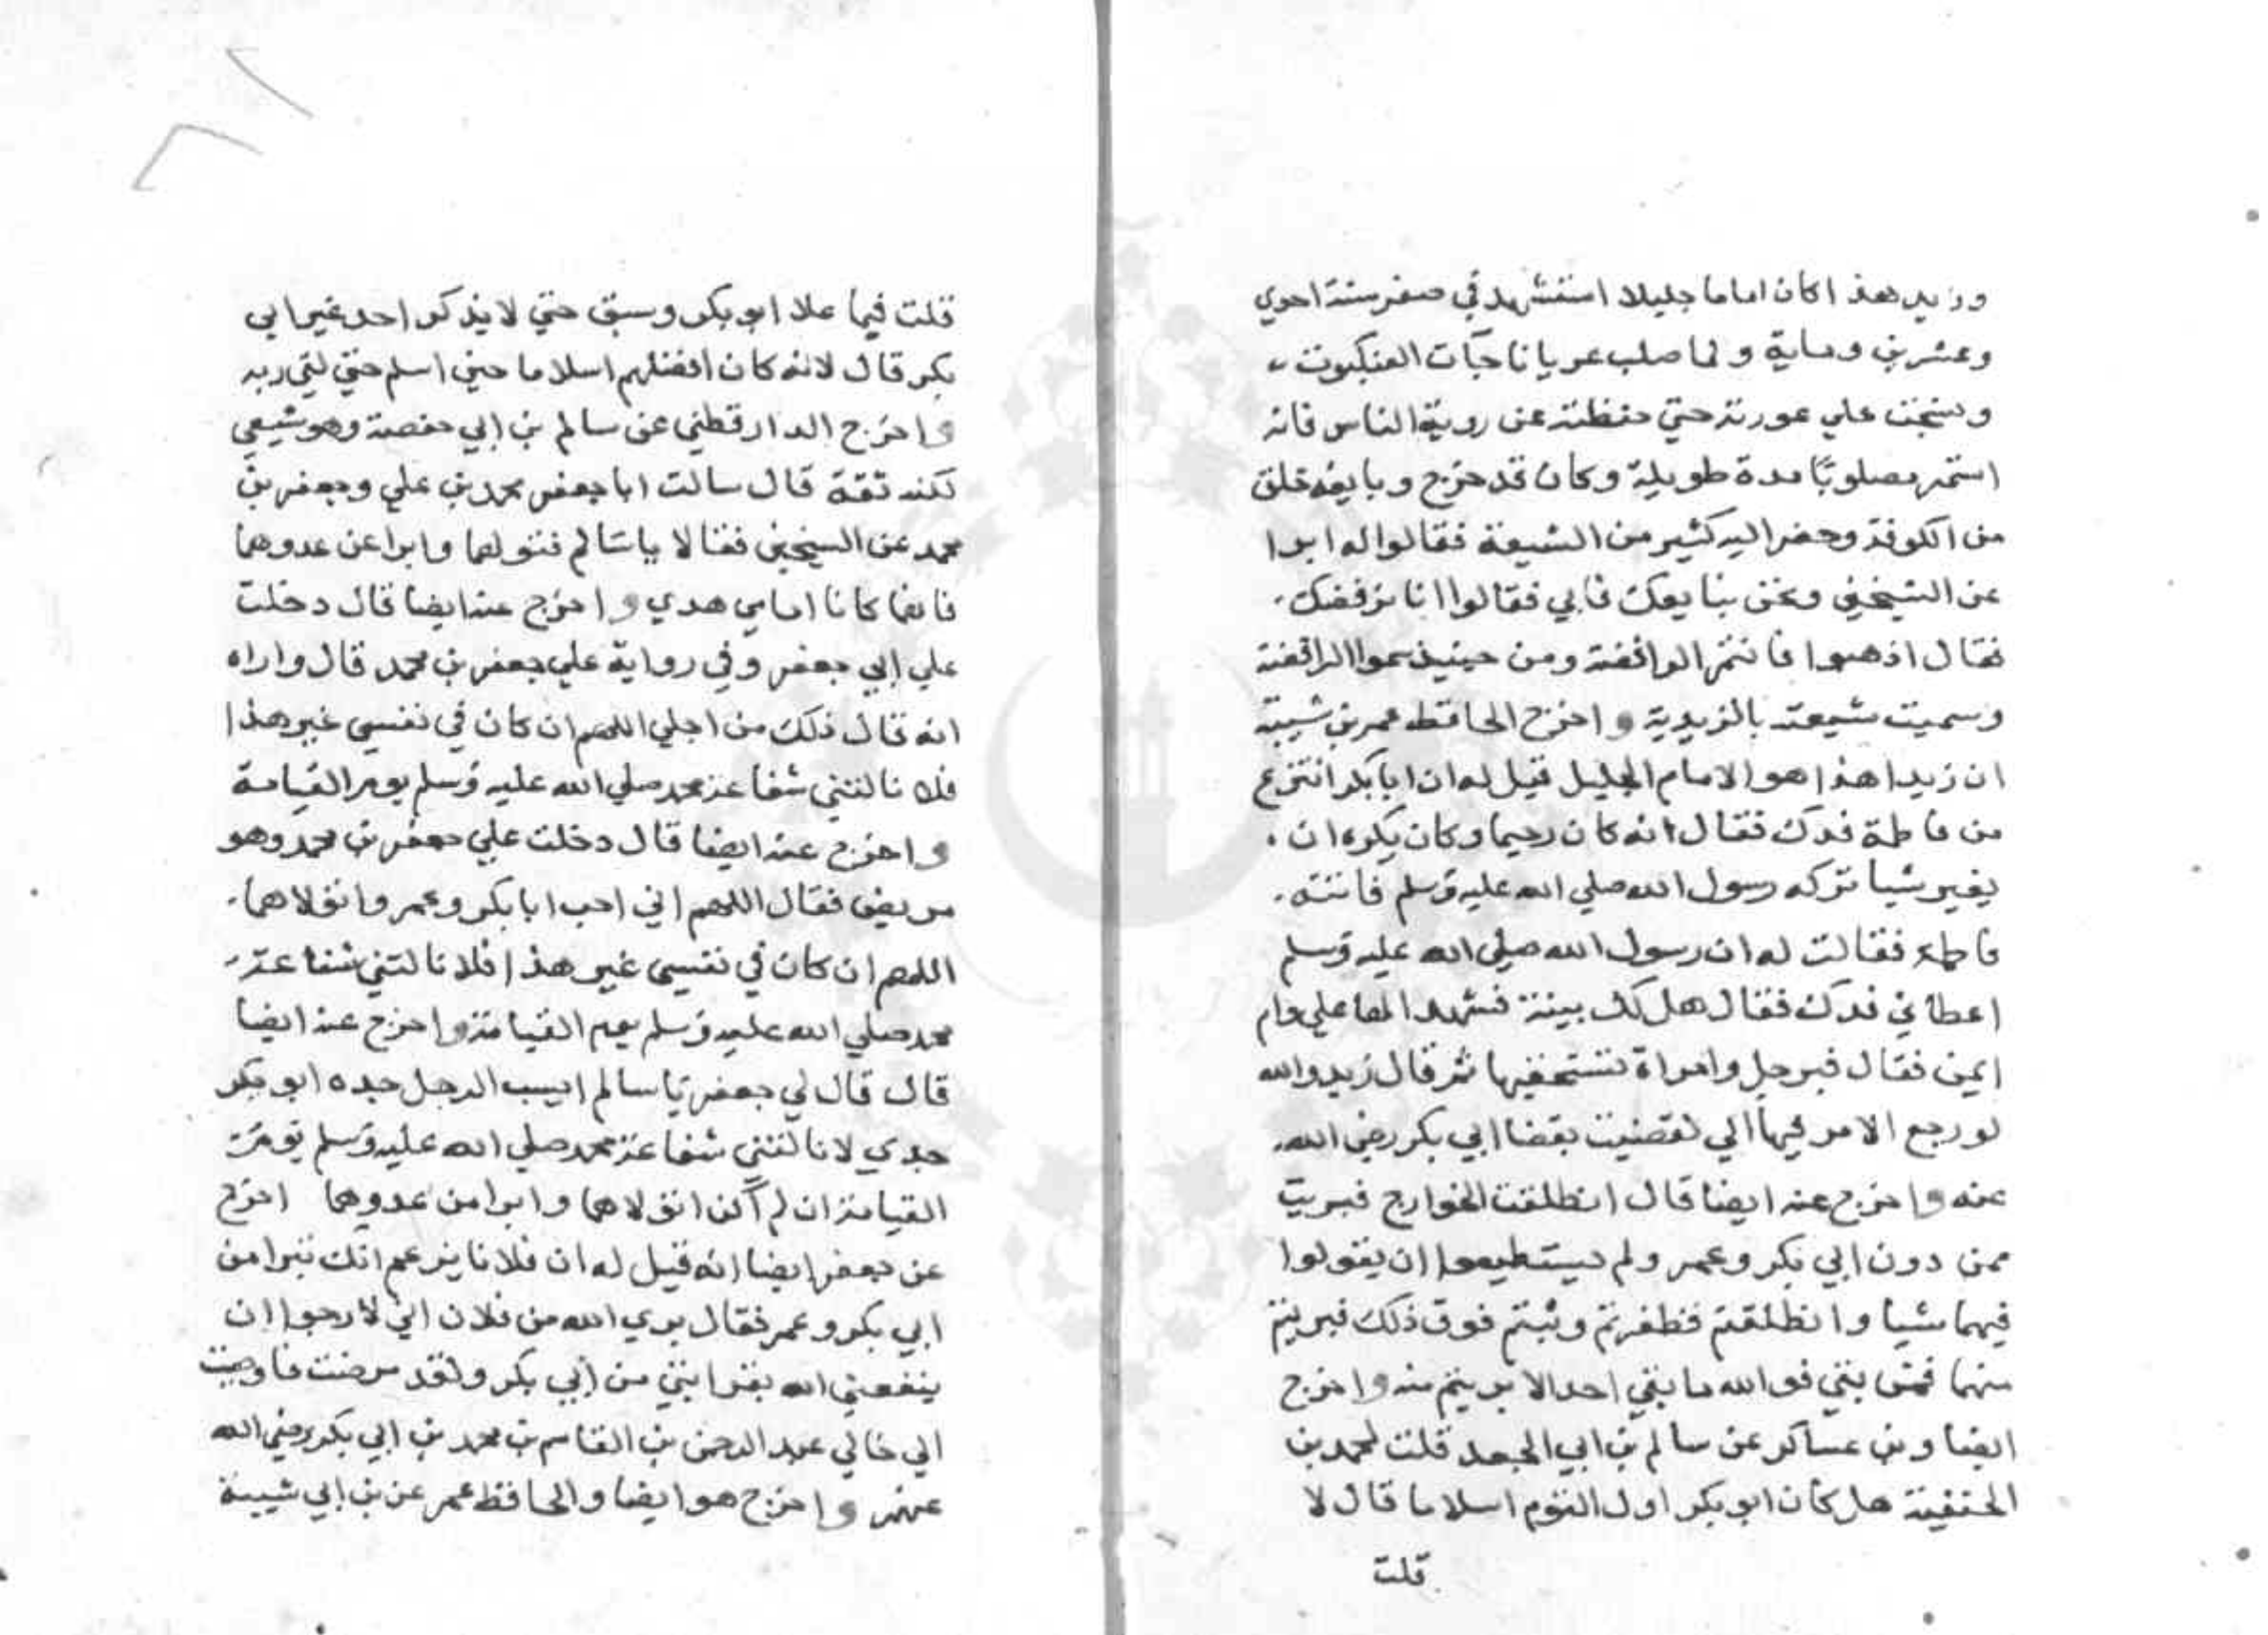 وزيد هذا كان اماما جليلا استشهد في صفر سنة احدي
وعشرين وماية ولما صلب عريانا جآت العنكبوت
ونسجت علي عورته حتي حفظته عن روية الناس فانه
استمر مصلوبًا مدة طويلة وكان قد خرج وبايعه خلق
من الكوفة وحضر اليه كثير من الشيعة فقالوا له ابرا
عن الشيخين ونحن نبايعك فابي فقالوا انا نرفضك
فقال اذهبوا فانتم الرافضة ومن حينيذ سموا الرافضة
وسميت شيعته بالزيدية واخرج الحافظ عمر بن شيبة
ان زيدا هذا هو الامام الجليل قيل له ان ابا بكر انتزع
من فاطمة فدك فقال انه كان رحيما وكان يكره ان
يغير شيا تركه رسول الله صلي الله عليه وسلم فاتته
فاطمة فقالت له ان رسول الله صلي الله عليه وسلم
اعطاني فدك فقال هل لك بينة فشهد لها علي وام
ايمن فقال فبرجل وامراة تستحقيها ثم قال زيد والله
لو رجع الامر فيها الي لقضيت بقضا ابي بكر رضي الله
عنه واخرج عنه ايضا قال انطلقت الخوارج فبريت
ممن دون ابي بكر وعمر ولم يستطيعوا ان يقولوا
فيهما شيا وانطلقتم فظفرتم وثبتم فوق ذلك فبريتم
منهما فمن بقي فوالله ما بقي احد الا بريتم منه واخرج
ايضا وبن عساكر عن سالم بن ابي الجعد قلت لمحمد بن
الحنفية هل كان ابو بكر اول القوم اسلاما قال لا
قلت
قلت فيما علا ابو بكر وسبق حتي لا يذكر احد غير ابي
بكر قال لانه كان افضلهم اسلاما حين اسلم حتي لقي ربه
واخرج الدارقطني عن سالم بن ابي حفصة وهو شيعي
لكنه ثقة قال سالت ابا جعفر محمد بن علي وجعفر بن
محمد عن الشيخين فقالا يا سالم فتولهما وابرا عن عدوهما
فانهما كانا امامي هدي واخرج عنه ايضا قال دخلت
علي ابي جعفر وفي رواية علي جعفر بن محمد قال واراه
انه قال ذلك من اجلي اللهم ان كان في نفسي غير هذا
فلا نالتني شفاعة محمد صلي الله عليه وسلم يوم القيامة
واخرج عنه ايضا قال دخلت علي جعفر بن محمد وهو
مريض فقال اللهم اني احب ابا بكر وعمر واتولاهما
اللهم ان كان في نفسي غير هذا فلا نالتني شفاعة
محمد صلي الله عليه وسلم يوم القيامة واخرج عنه ايضا
قال قال لي جعفر يا سالم ايسب الرجل جده ابو بكر
جدي لا نالتني شفاعة محمد صلي الله عليه وسلم يوم
القيامة ان لم اكن اتولاهما وابرا من عدوهما اخرج
عن جعفر ايضا انه قيل له ان فلانا يزعم انك تتبرا من
ابي بكر وعمر فقال بري الله من فلان اني لا رجوا ان
ينفعني الله بقرابتي من ابي بكر ولقد مرضت فاوصيت
الي خالي عبد الرحمن بن القاسم بن محمد بن ابي بكر رضي الله
عنهم واخرج هو ايضا والحافظ عمر عن بن ابي شيبة